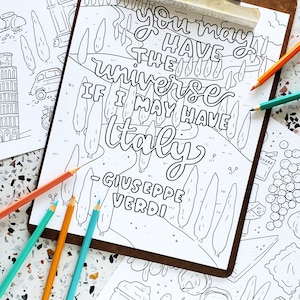 you may
HAVE
THE
universe
IF I MAY HAVE
Italy
-GIUSEPPE
VERDI